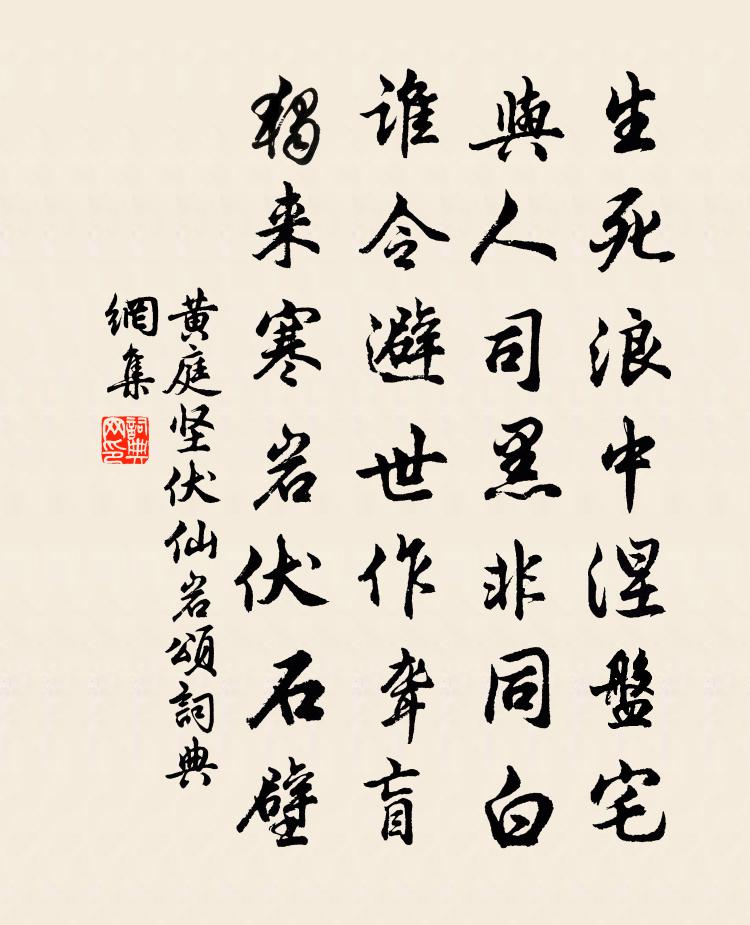 生死浪中涅盤宅
與人司黑非同白
谁令避世作聋盲
獨来寒岩伏石壁
黄庭坚伏仙岩頌詞典
網集
詞典
网印